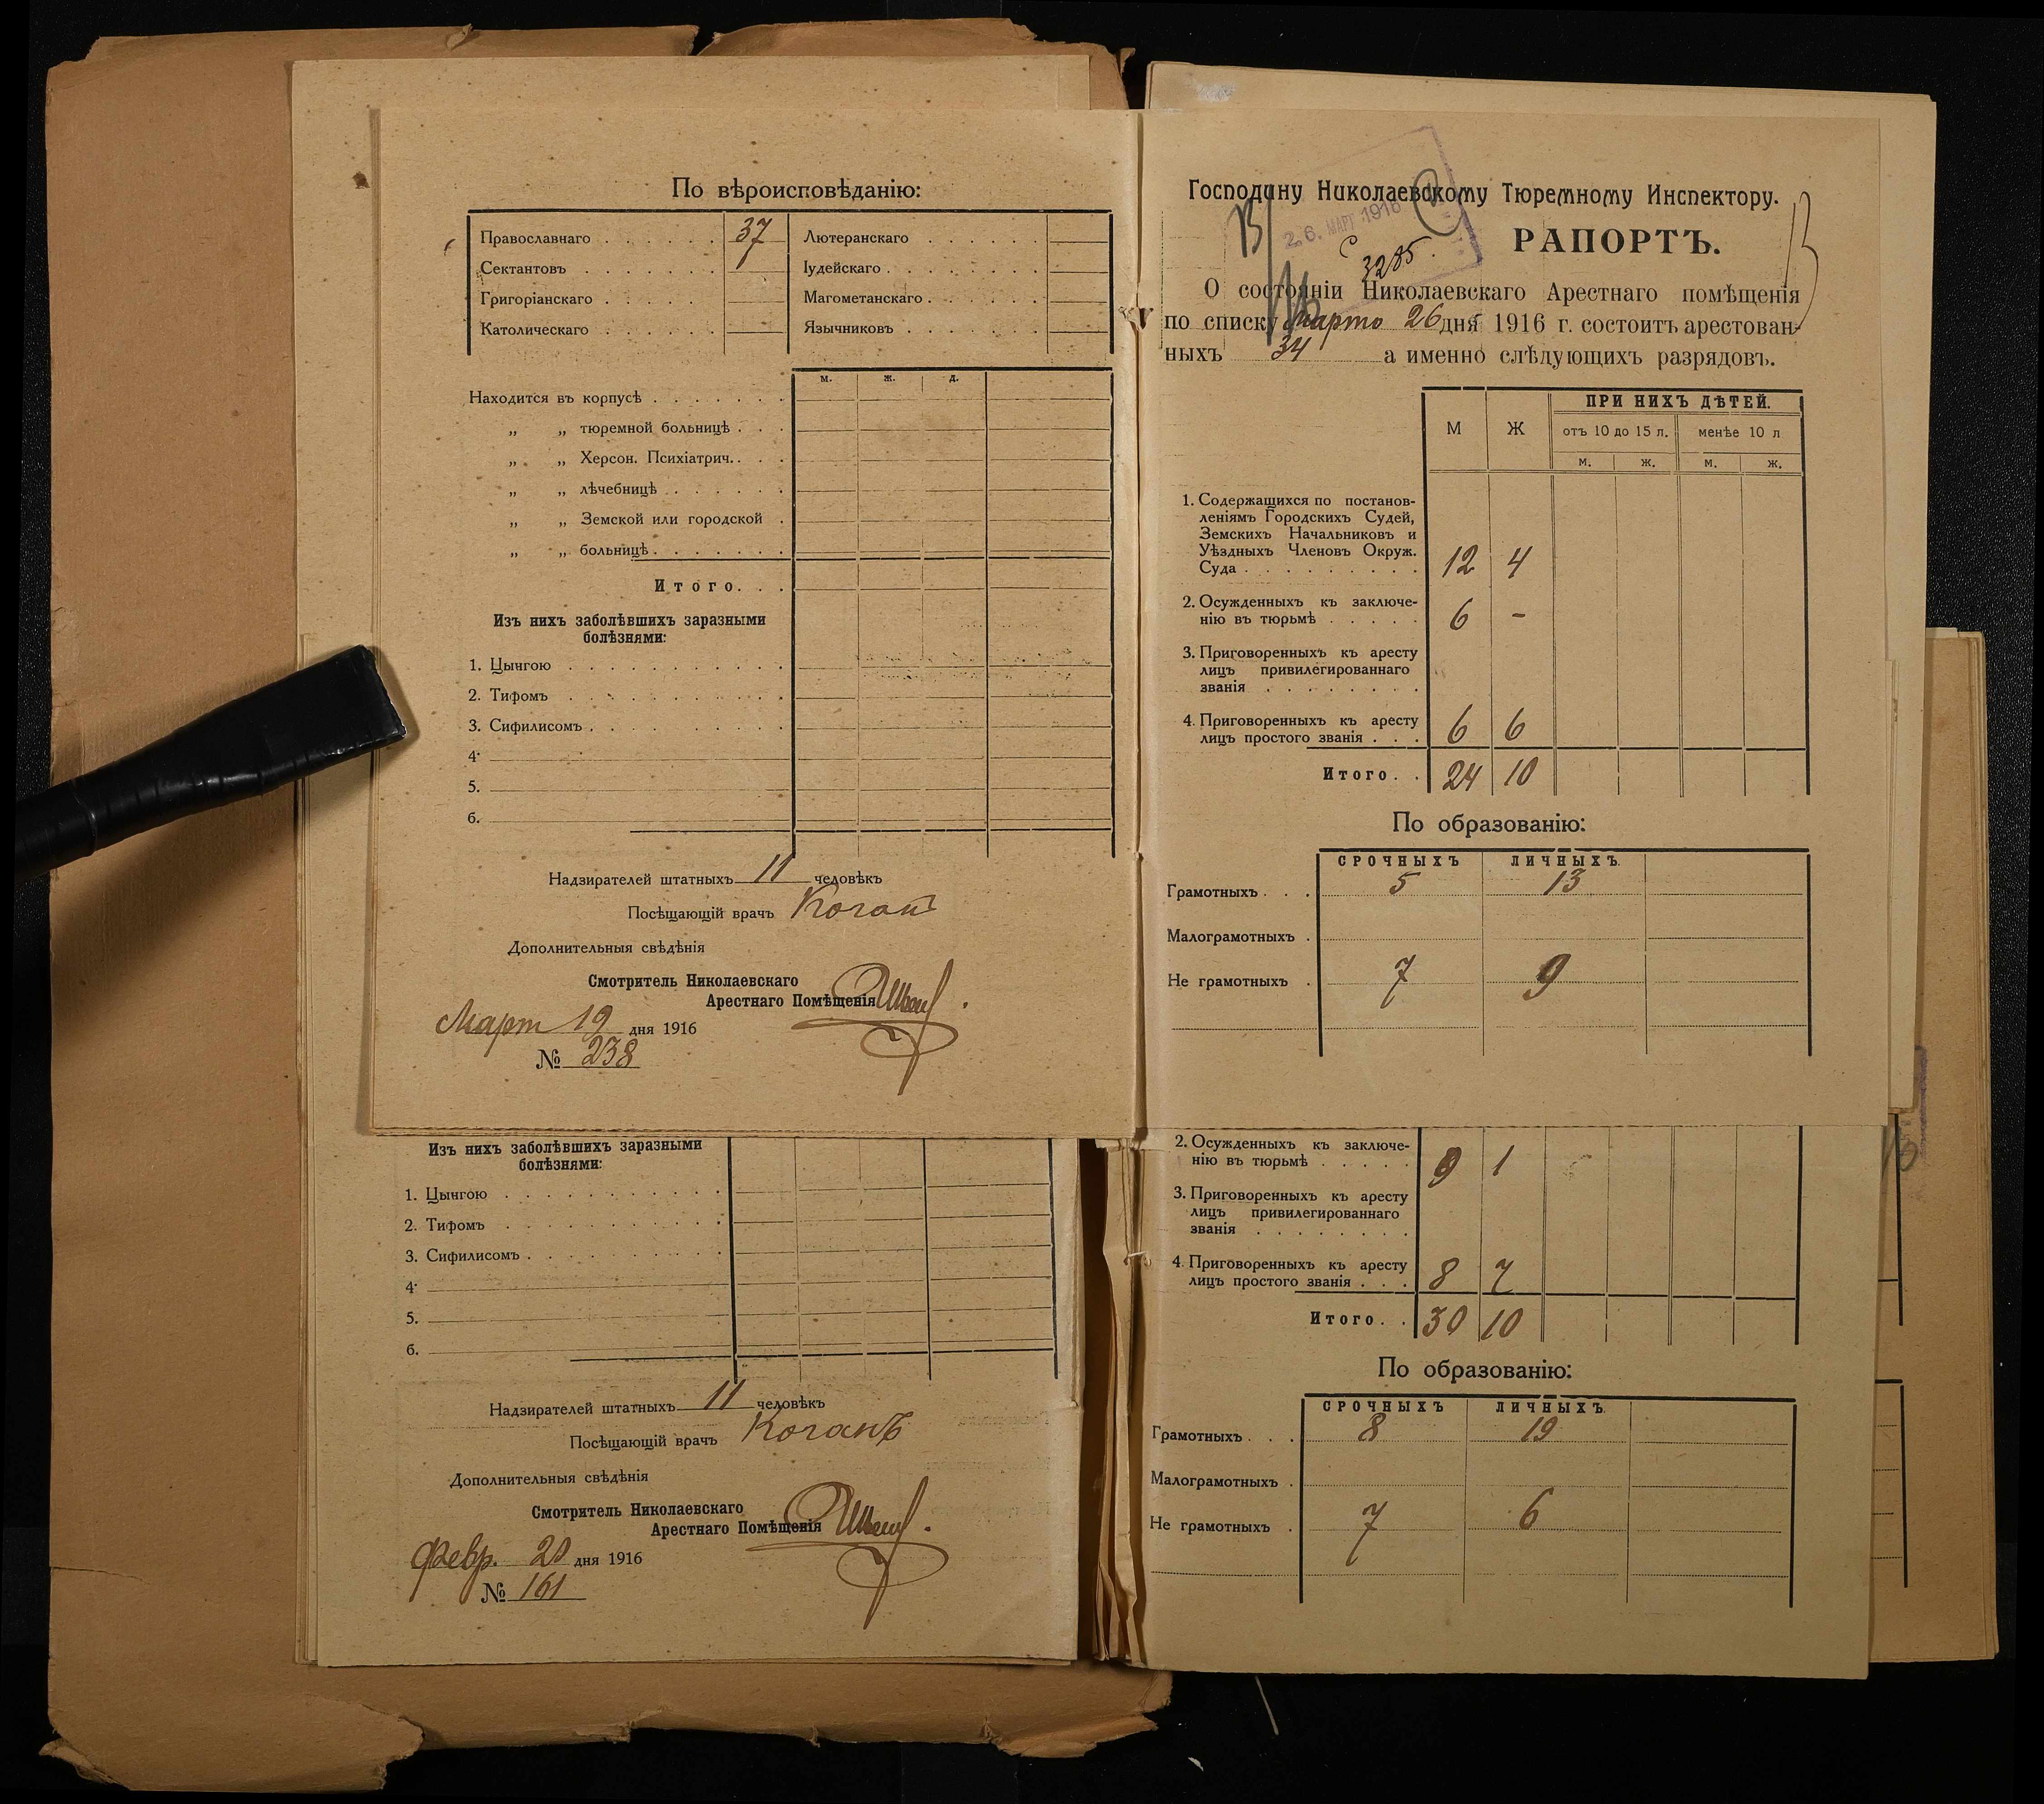 По вѣроисповѣданію:
Православнаго . . . . . . 37 Лютеранскаго . . . . . .
Сектантовъ . . . . . . . Іудейскаго . . . . . . .
Григоріанскаго . . . . . Магометанскаго . . . . .
Католическаго . . . . . . Язычниковъ . . . . . .
м. ж. д.
Находится въ корпусѣ . . . . . . .
„ „ тюремной больницѣ . . .
„ „ Херсон. Психіатрич. . . .
„ „ лѣчебницѣ . . . . . .
„ „ Земской или городской .
„ „ больницѣ . . . . . . .
Итого. . .
Изъ нихъ заболѣвшихъ заразными
болѣзнями:
1. Цынгою . . . . . . . . . . .
2. Тифомъ . . . . . . . . . . .
3. Сифилисомъ . . . . . . . . .
4.
5.
6.
Надзирателей штатныхъ 11 человѣкъ
Посѣщающій врачъ Коганъ
Дополнительныя свѣдѣнія
Смотритель Николаевскаго
Арестнаго Помѣщенія
Март 19 дня 1916
№ 238
Изъ нихъ заболѣвшихъ заразными
болѣзнями:
1. Цынгою . . . . . . . . . . .
2. Тифомъ . . . . . . . . . . .
3. Сифилисомъ . . . . . . . . .
4.
5.
6.
Надзирателей штатныхъ 11 человѣкъ
Посѣщающій врачъ Коганъ
Дополнительныя свѣдѣнія
Смотритель Николаевскаго
Арестнаго Помѣщенія
Февр. дня 1916
№ 161
Господину Николаевскому Тюремному Инспектору.
26. МАРТ 1916
3285.
РАПОРТЪ.
О состояніи Николаевскаго Арестнаго помѣщенія
по списку Марта 26 дня 1916 г. состоитъ арестован-
ныхъ 34 а именно слѣдующихъ разрядовъ.
М Ж ПРИ НИХЪ ДѢТЕЙ.
отъ 10 до 15 л. менѣе 10 л
м. ж. м. ж.
1. Содержащихся по постанов-
леніямъ Городскихъ Судей,
Земскихъ Начальниковъ и
Уѣздныхъ Членовъ Окруж.
Суда . . . . . . . . . 12 4
2. Осужденныхъ къ заключе-
нію въ тюрьмѣ . . . . . 6 -
3. Приговоренныхъ къ аресту
лицъ привилегированнаго
званія . . . . . . . .
4. Приговоренныхъ къ аресту
лицъ простого званія . . . 6 6
Итого. . 24 10
По образованію:
СРОЧНЫХЪ ЛИЧНЫХЪ.
Грамотныхъ . . . 5 13
Малограмотныхъ .
Не грамотныхъ . 7 9
2. Осужденныхъ къ заключе-
нію въ тюрьмѣ . . . . . 9 1
3. Приговоренныхъ къ аресту
лицъ привилегированнаго
званія . . . . . . . .
4. Приговоренныхъ къ аресту
лицъ простого званія . . . 8 7
Итого. . 30 10
По образованію:
СРОЧНЫХЪ ЛИЧНЫХЪ.
Грамотныхъ . . . 8 19
Малограмотныхъ .
Не грамотныхъ . 7 6